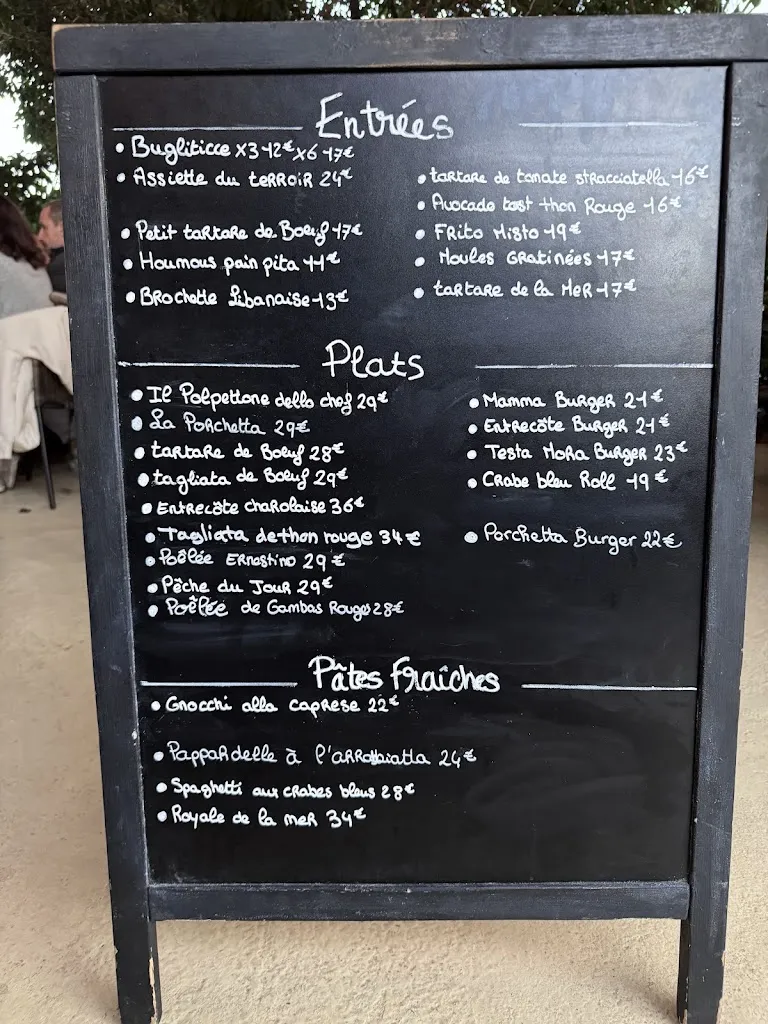 Entrées
Bugliticce x3 12€ x6 17€
Assiette du terroir 24€
Petit tartare de Boeuf 17€
Houmous pain pita 11€
Brochette Libanaise 13€
tartare de tomate stracciatella 16€
Avocado tost thon Rouge 16€
Frito Misto 19€
Moules Gratinées 17€
tartare de la Mer 17€
Plats
Il Polpettone dello chef 29€
La Porchetta 29€
tartare de Boeuf 28€
tagliata de Boeuf 29€
Entrecôte charolaise 36€
Tagliata de thon rouge 34€
Poêlée Ernestino 29€
Pêche du Jour 29€
Poêlée de Gambas Rouges 28€
Mamma Burger 21€
Entrecôte Burger 21€
Testa Mora Burger 23€
Crabe bleu Roll 19€
Porchetta Burger 22€
Pâtes Fraîches
Gnocchi alla caprese 22€
Pappardelle à l'arrabiatta 24€
Spaghetti aux crabes bleus 28€
Royale de la mer 34€